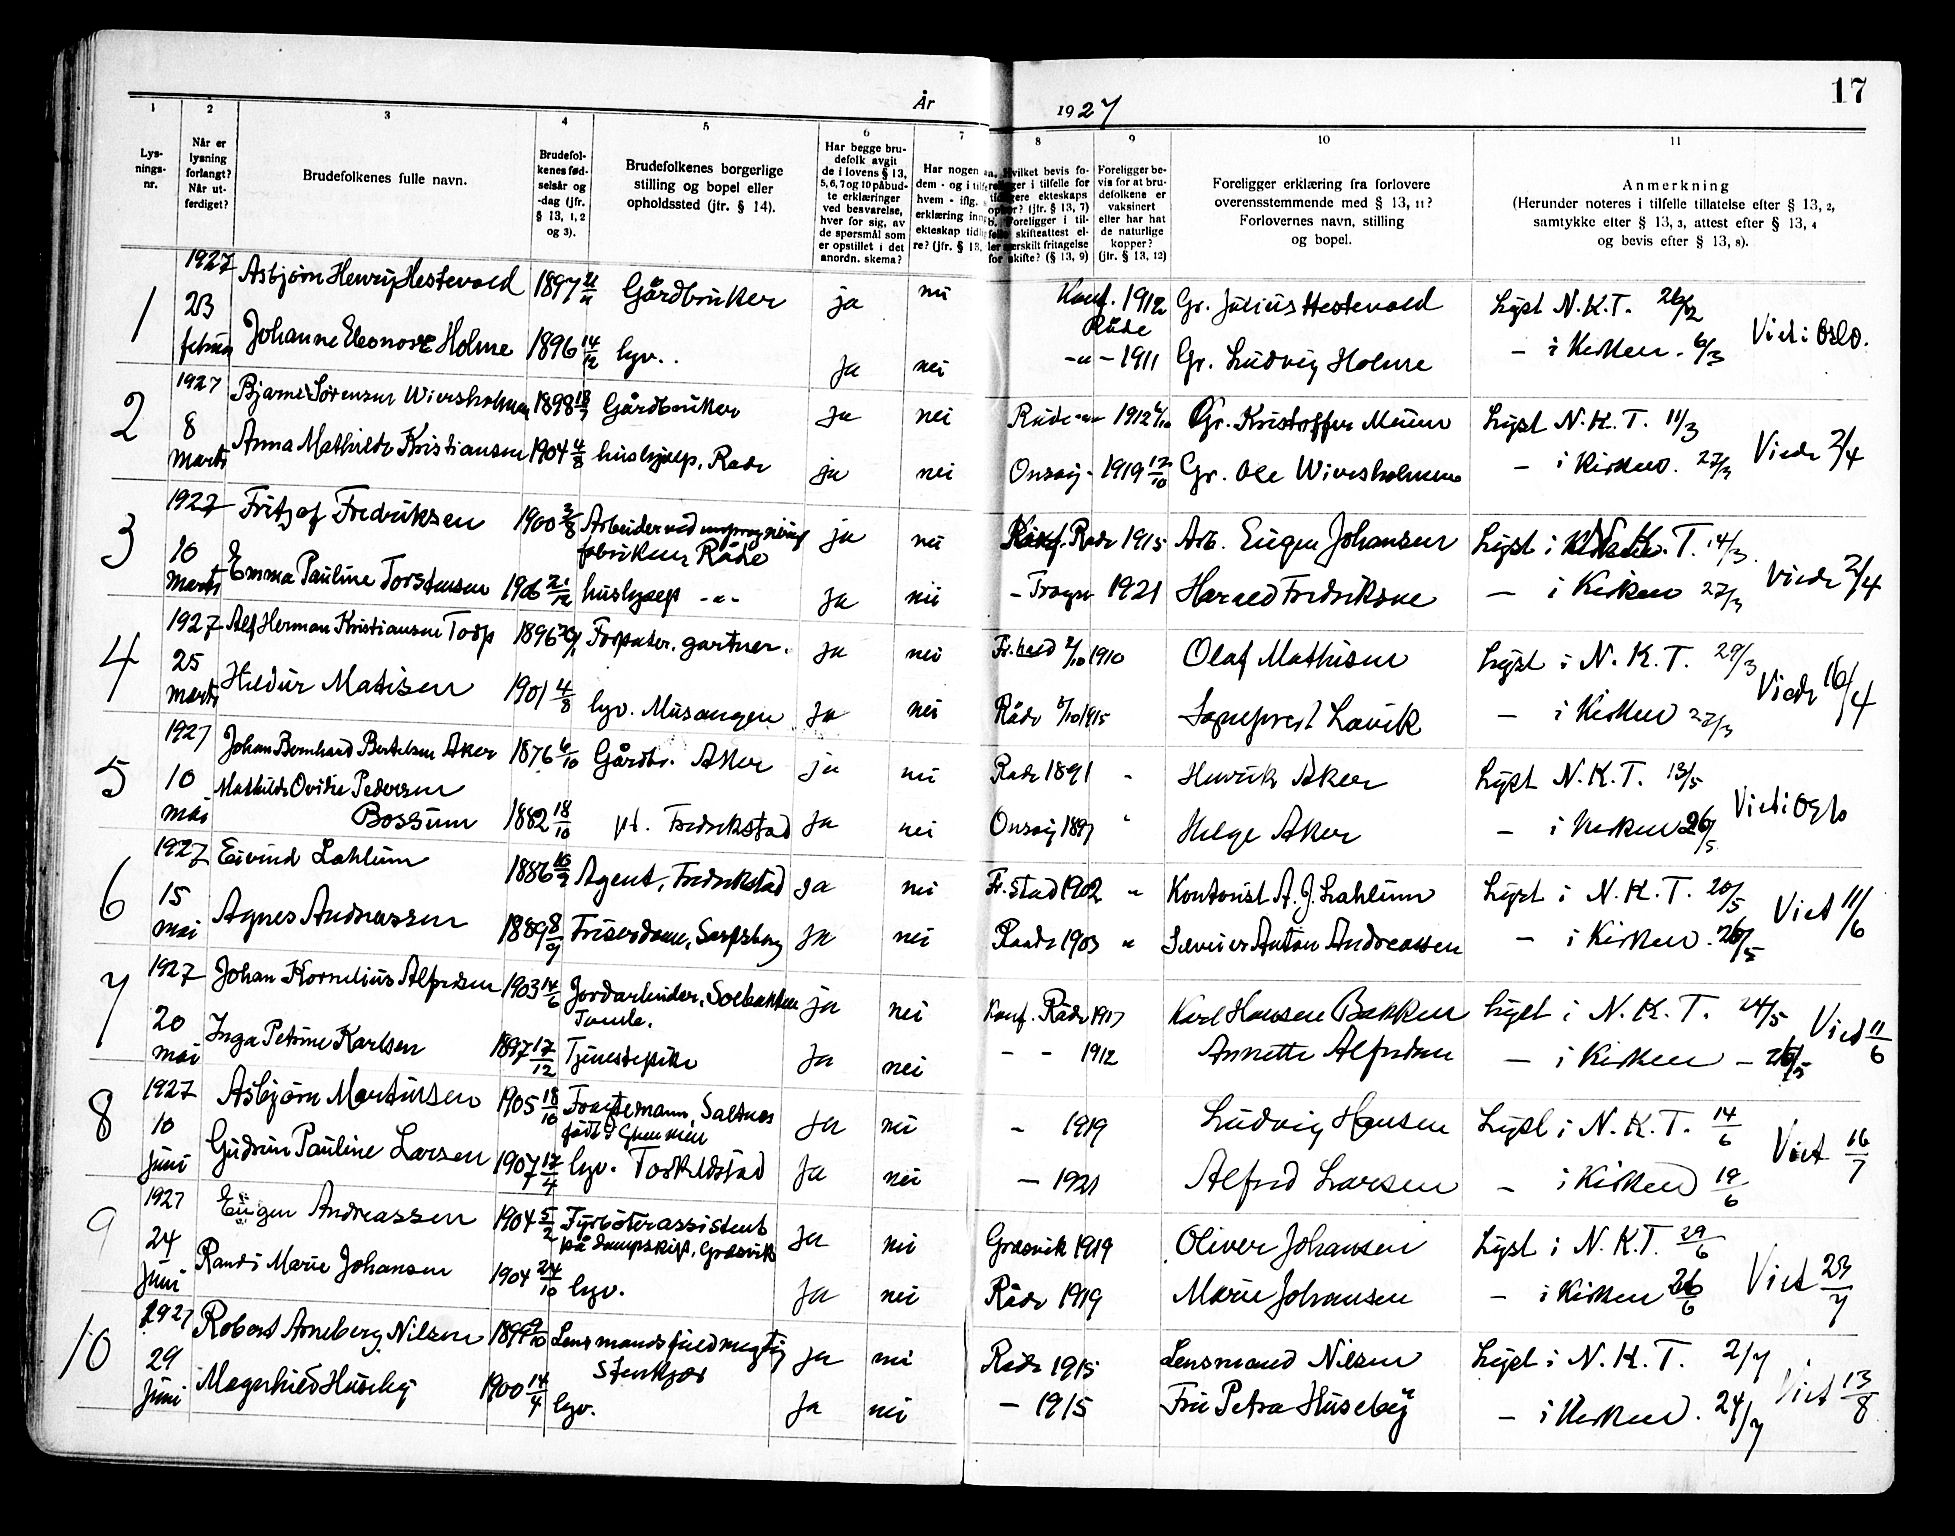 År 1927
17
1 2 3 4 5 6 7 8 9 10 11
Lys-
nings-
nr.
Når er
lysning
forlangt?
Når ut-
ferdiget?
Brudefolkenes fulle navn.
Brudefol-
kenes fød-
selsår og
-dag (jfr.
§ 13, 1, 2
og 3).
Brudefolkenes borgerlige
stilling og bopel eller
opholdssted (jfr. § 14).
Har begge bru-
defolk avgit
de i lovens § 13,
5, 6, 7 og 10 påbud-
te erklæringer
ved besvarelse,
hver for sig, av
de spørsmål som
er opstillet i det
anordn. skema?
Har nogen
dem - og i tilf
hvem - iflg.
erklæring inng
ekteskap tidlig
re? (jfr. § 13,
Hvilket bevis fo-
religger i tilfelle for
tidligere ekteskaps
ophør? (jfr. § 13, 7)
Foreligger i til-
felle skifteattest el-
ler særskilt fritagelse
for skifte? (§ 13, 9)
Foreligger be-
vis for at bru-
defolkene er
vaksinert
eller har hat
de naturlige
kopper?
(jfr. § 13, 12)
Foreligger erklæring fra forlovere
overensstemmende med § 13, 11?
Forlovernes navn, stilling
og bopel.
Anmerkning
(Herunder noteres i tilfelle tillatelse efter § 13, 2,
samtykke efter § 13, 3, attest efter § 13, 4
og bevis efter § 13, 8).
1 1927 23 februar Asbjørn Henry Hestevold 1897 Gårdbruker ja nei Konf. 1912 Råde Gr. Julius Hestevold Lyst N.K.T. 26/2
Johanne Eleonore Holme 1896 14/12 hgv. ja nei -"- 1911 Gr. Ludvig Holme - i Kirken. 6/3 Viet i Oslo.
2 1927 8 marts Bjarne Sørensen Wiersholmen 1898 Gårdbruker ja nei Råde -"- 1912 Gr. Kristoffer Lyst N.K.T. 11/3
Anna Mathilde Kristiansen 1904 4/8 hushjælp, Rade ja nei Onsøy - 1919 12/10 Gr. Ole Wiersholmen - i Kirken. 27/3 Viede 2/4
3 1927 10 marts Fritjof Fredriksen 1900 3/8 Arbeider ved imprægnerings fabrikken Råde ja nei Konf. Rade 1915 Arb. Eugen Johansen Lyst i N.K.T. 14/3
Emma Pauline Torstensen 1906 21/12 hushjælp -"- ja nei - 1921 Harald Fredriksen - i Kirken 27/3 Viede 2/4
4 1927 25 marts Alf Herman Kristiansen Torp 1896 Forpakter. gartner. ja nei Fr.stad 2/10 1910 Olaf Mathisen Lyst i N.K.T. 29/3
Hildur Matisen 1901 4/8 hgv. Missingen ja nei Råde 1915 Sogneprest Lavik - i Kirken 27/3 Viede 16/4
5 1927 10 mai Johan Bernhard Bertelsen Aker 1876 6/10 Gårdbr. Aker ja nei Rade 1891 " Henrik Aker Lyst N.K.T. 13/5
Mathilde Ovidie Pedersen
Bossum 1882 18/10 pt. Fredrikstad ja nei Onsøy 1897 " Helge Aker - i Kirken 26/5 Viet i Oslo
6 1927 15 mai Eivind Lahlum 1886 Agent, Fredrikstad ja nei Fr.stad 1902 " Kontorist A.J. Lahlum Lyst i N.K.T. 20/5
Agnes Andreassen 1889 8/9 Friserdame, Sarpsborg ja nei Raade 1903 " Anton Andreassen - i Kirken. 26/5 Viet 11/6
7 1927 20 mai Johan Kornelius Alfredsen 1903 14/6 Jordarbeider, Solbakken Tomb. ja nei Konf. Råde 1917 Karl Hansen Bakken Lyst i N.K.T. 24/5
Inga Petrine Karlsen 1897 17/12 Tjenestepike ja nei - - 1912 Annette Alfredsen - i Kirken - 26/5 Viet 11/6
8 1927 10 juni Asbjørn Martinsen 1905 18/10 Saltnes ja nei - 1919 Ludvig Hansen Lyst i N.K.T. 14/6
Gudrun Pauline Larsen 1907 17/4 hgv. Torkildstad ja nei - 1921 Alfred Larsen - i Kirken 19/6 Viet 16/7
9 1927 24 juni Eugen Andreassen 1904 5/2 Fyrbøterassistent på dampskip, Græsvik ja nei Græsvik 1919 Oliver Johansen Lyst i N.K.T. 29/6
Randi Marie Johansen 1904 24/10 hgv. ja nei Råde 1919 Marie Johansen - i Kirken 26/6 Viet 23/7
10 1927 29 juni Robert Arneberg Nilsen 1899 9/10 Lensmandsfuldmegtig Stenkjær ja nei Råde 1915 Lensmand Nilsen Lyst i N.K.T. 2/7
Magnhild Huseby 1900 14/4 hgv. ja nei - 1915 Fru Petra Huseby - i Kirken. 24/7 Viet 13/8